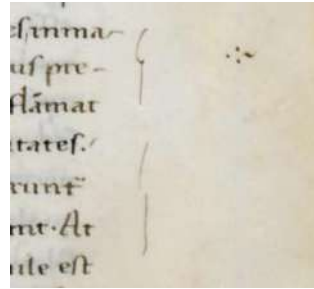 es,inma-
uſ pre-
flāmat
tateſ.
runt
nt. At
ile eſt